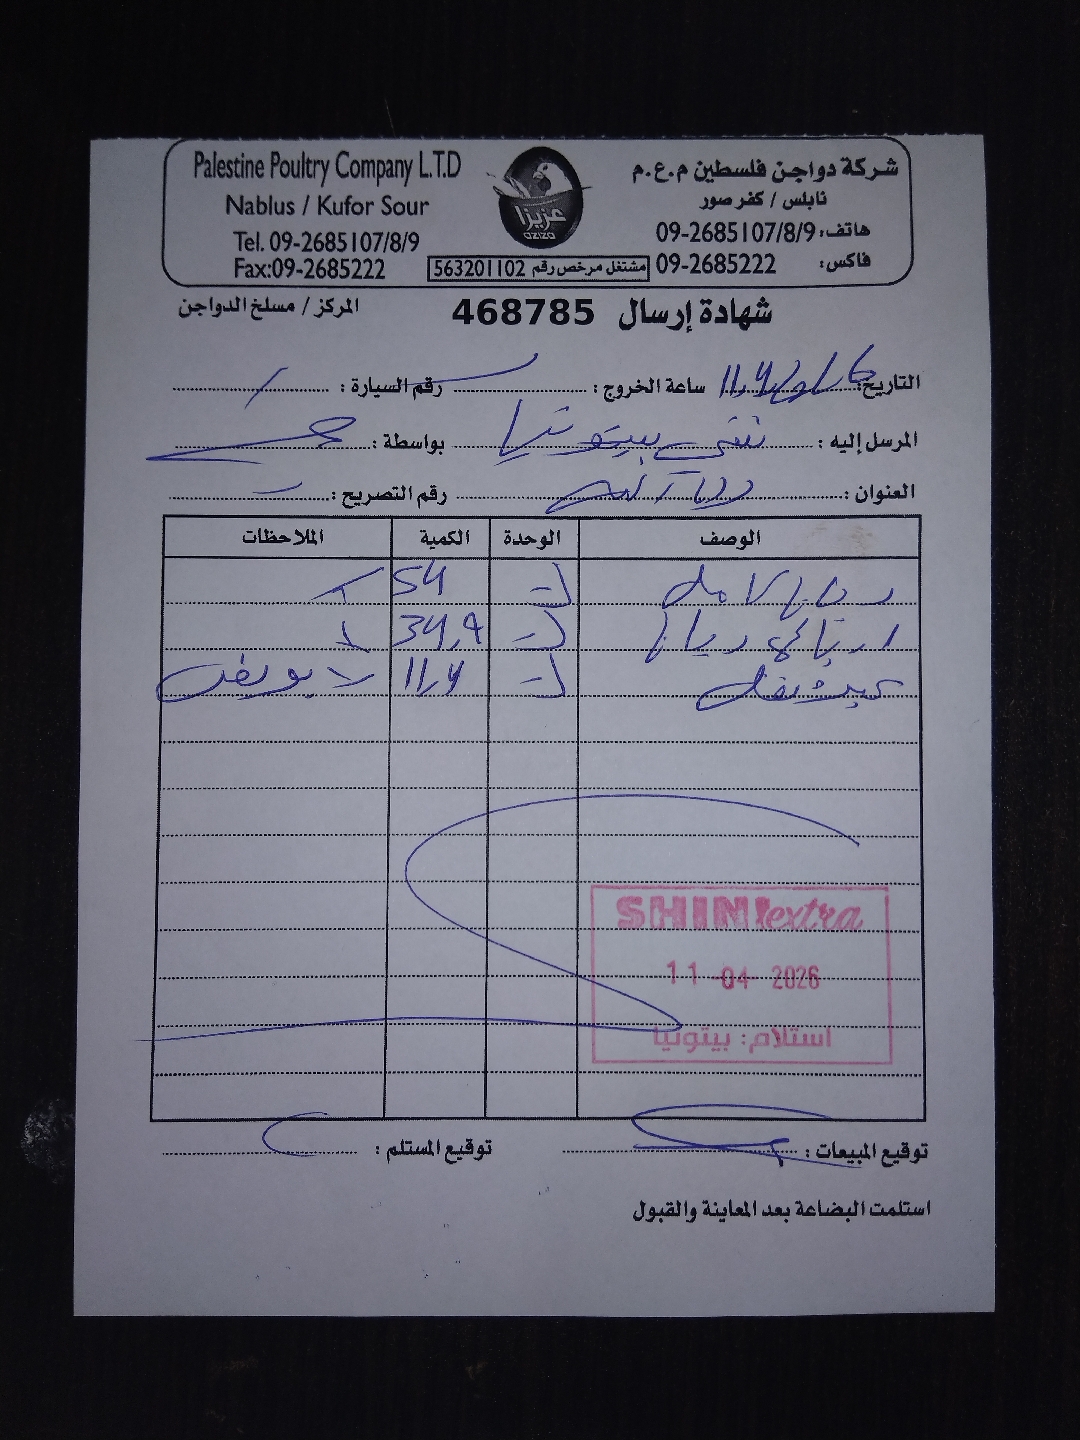 Palestine Poultry Company L.T.D
Nablus / Kufor Sour
Tel. 09-2685107/8/9
Fax:09-2685222
عزيزا
aziza
مشتغل مرخص رقم 563201102
شركة دواجن فلسطين م.ع.م
نابلس / كفر صور
هاتف: 09-2685107/8/9
فاكس: 09-2685222
شهادة إرسال 468785
المركز / مسلخ الدواجن
التاريخ: ساعة الخروج: رقم السيارة:
المرسل إليه: بيتونيا بواسطة:
العنوان: رام الله رقم التصريح:
الوصف الوحدة الكمية الملاحظات
ك 54
ك 34,9
ك 11,4
SHINI extra
11 -04- 2026
استلام: بيتونيا
توقيع المبيعات: توقيع المستلم:
استلمت البضاعة بعد المعاينة والقبول